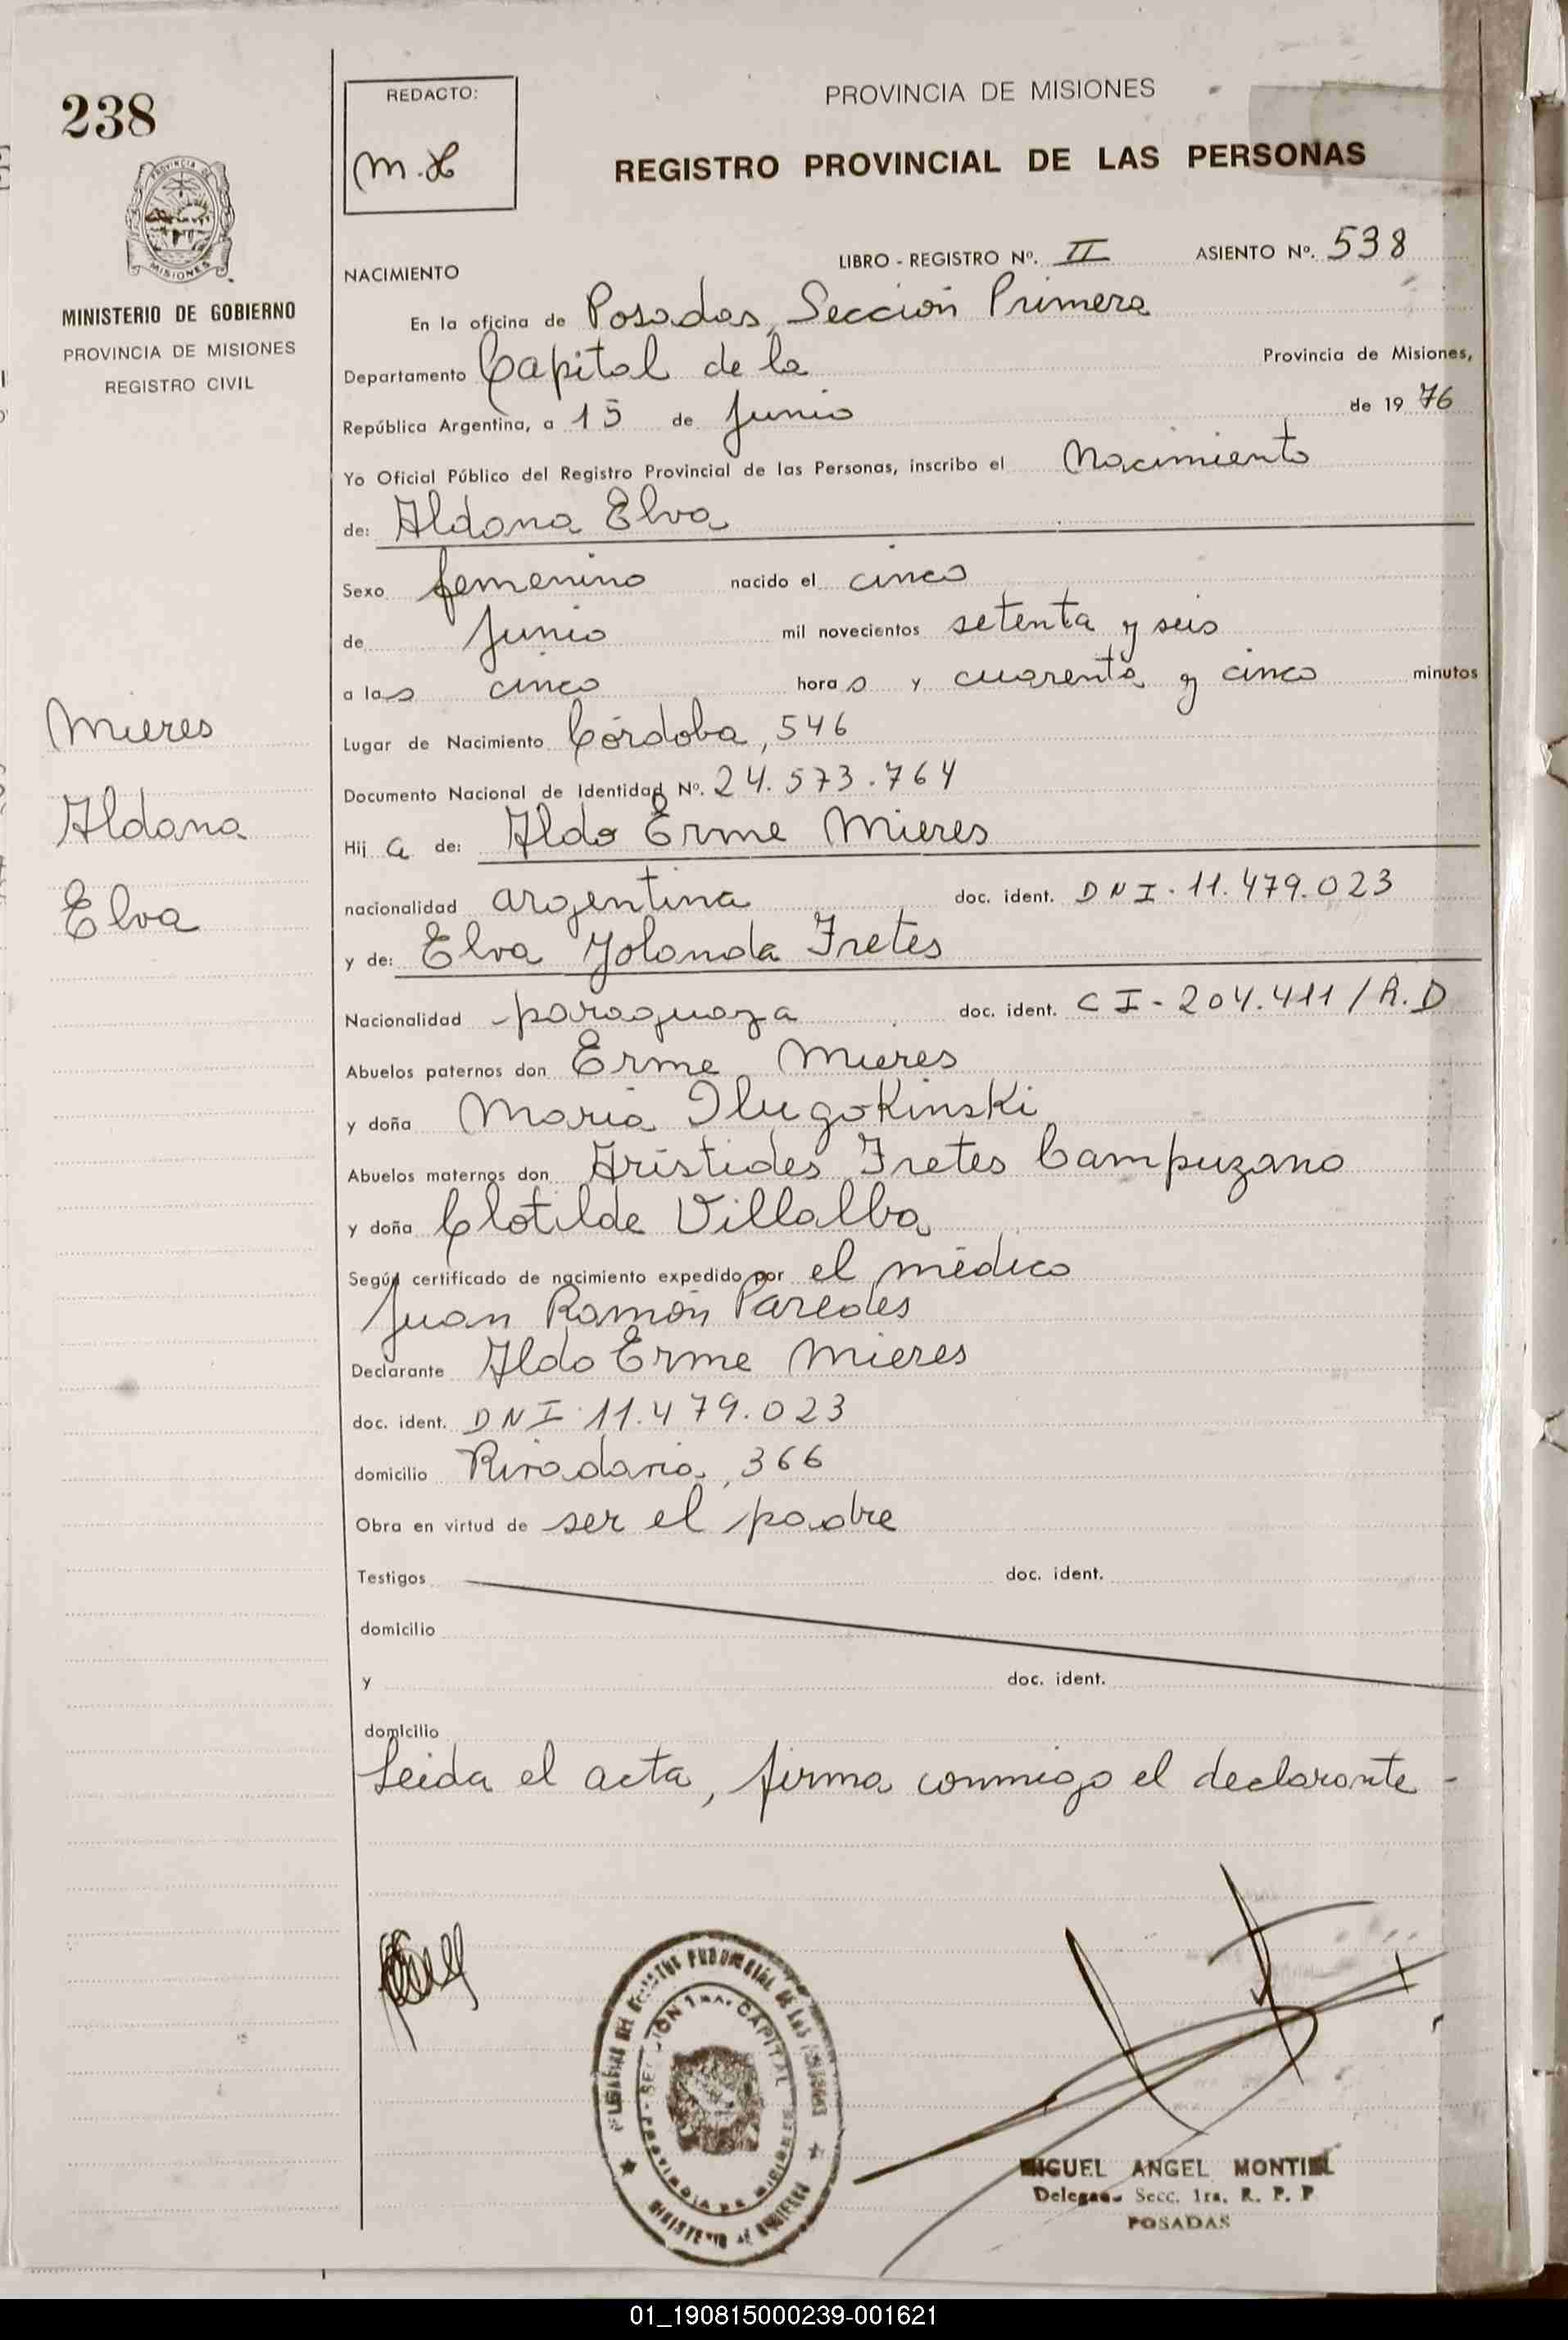 238
REDACTO:
m.H
PROVINCIA DE MISIONES
REGISTRO PROVINCIAL DE LAS PERSONAS
MISIONES
MINISTERIO DE GOBIERNO
PROVINCIA DE MISIONES
REGISTRO CIVIL
NACIMIENTO
LIBRO - REGISTRO Nº. II ASIENTO Nº. 538
En la oficina de Posadas, Sección Primera
Departamento Capital de la Provincia de Misiones,
República Argentina, a 15 de Junio de 19 76
Yo Oficial Público del Registro Provincial de las Personas, inscribo el Nacimiento
de: Aldana Elva
Sexo femenino nacido el cinco
de Junio mil novecientos setenta y seis
a las cinco horas y cuarenta y cinco minutos
Mieres
Aldana
Elva
Lugar de Nacimiento Córdoba, 546
Documento Nacional de Identidad Nº. 24.573.764
Hij a de: Aldo Erme Mieres
nacionalidad argentina doc. ident. DNI. 11.479.023
y de: Elva Yolanda Fretes
Nacionalidad paraguaya doc. ident. CI - 204.411 / R.D
Abuelos paternos don Erme Mieres
y doña María Dlugokinski
Abuelos maternos don Arístides Fretes Campuzano
y doña Clotilde Villalba
Según certificado de nacimiento expedido por el médico
Juan Ramón Paredes
Declarante Aldo Erme Mieres
doc. ident. DNI. 11.479.023
domicilio Rivadavia, 366
Obra en virtud de ser el padre
Testigos doc. ident.
domicilio
y doc. ident.
domicilio
Leida el acta, firma conmigo el declarante -
SECCION 1ra. CAPITAL
PROVINCIA DE MISIONES
MIGUEL ANGEL MONTIEL
Delegado Secc. 1ra. R. P. P
POSADAS
01_190815000239-001621